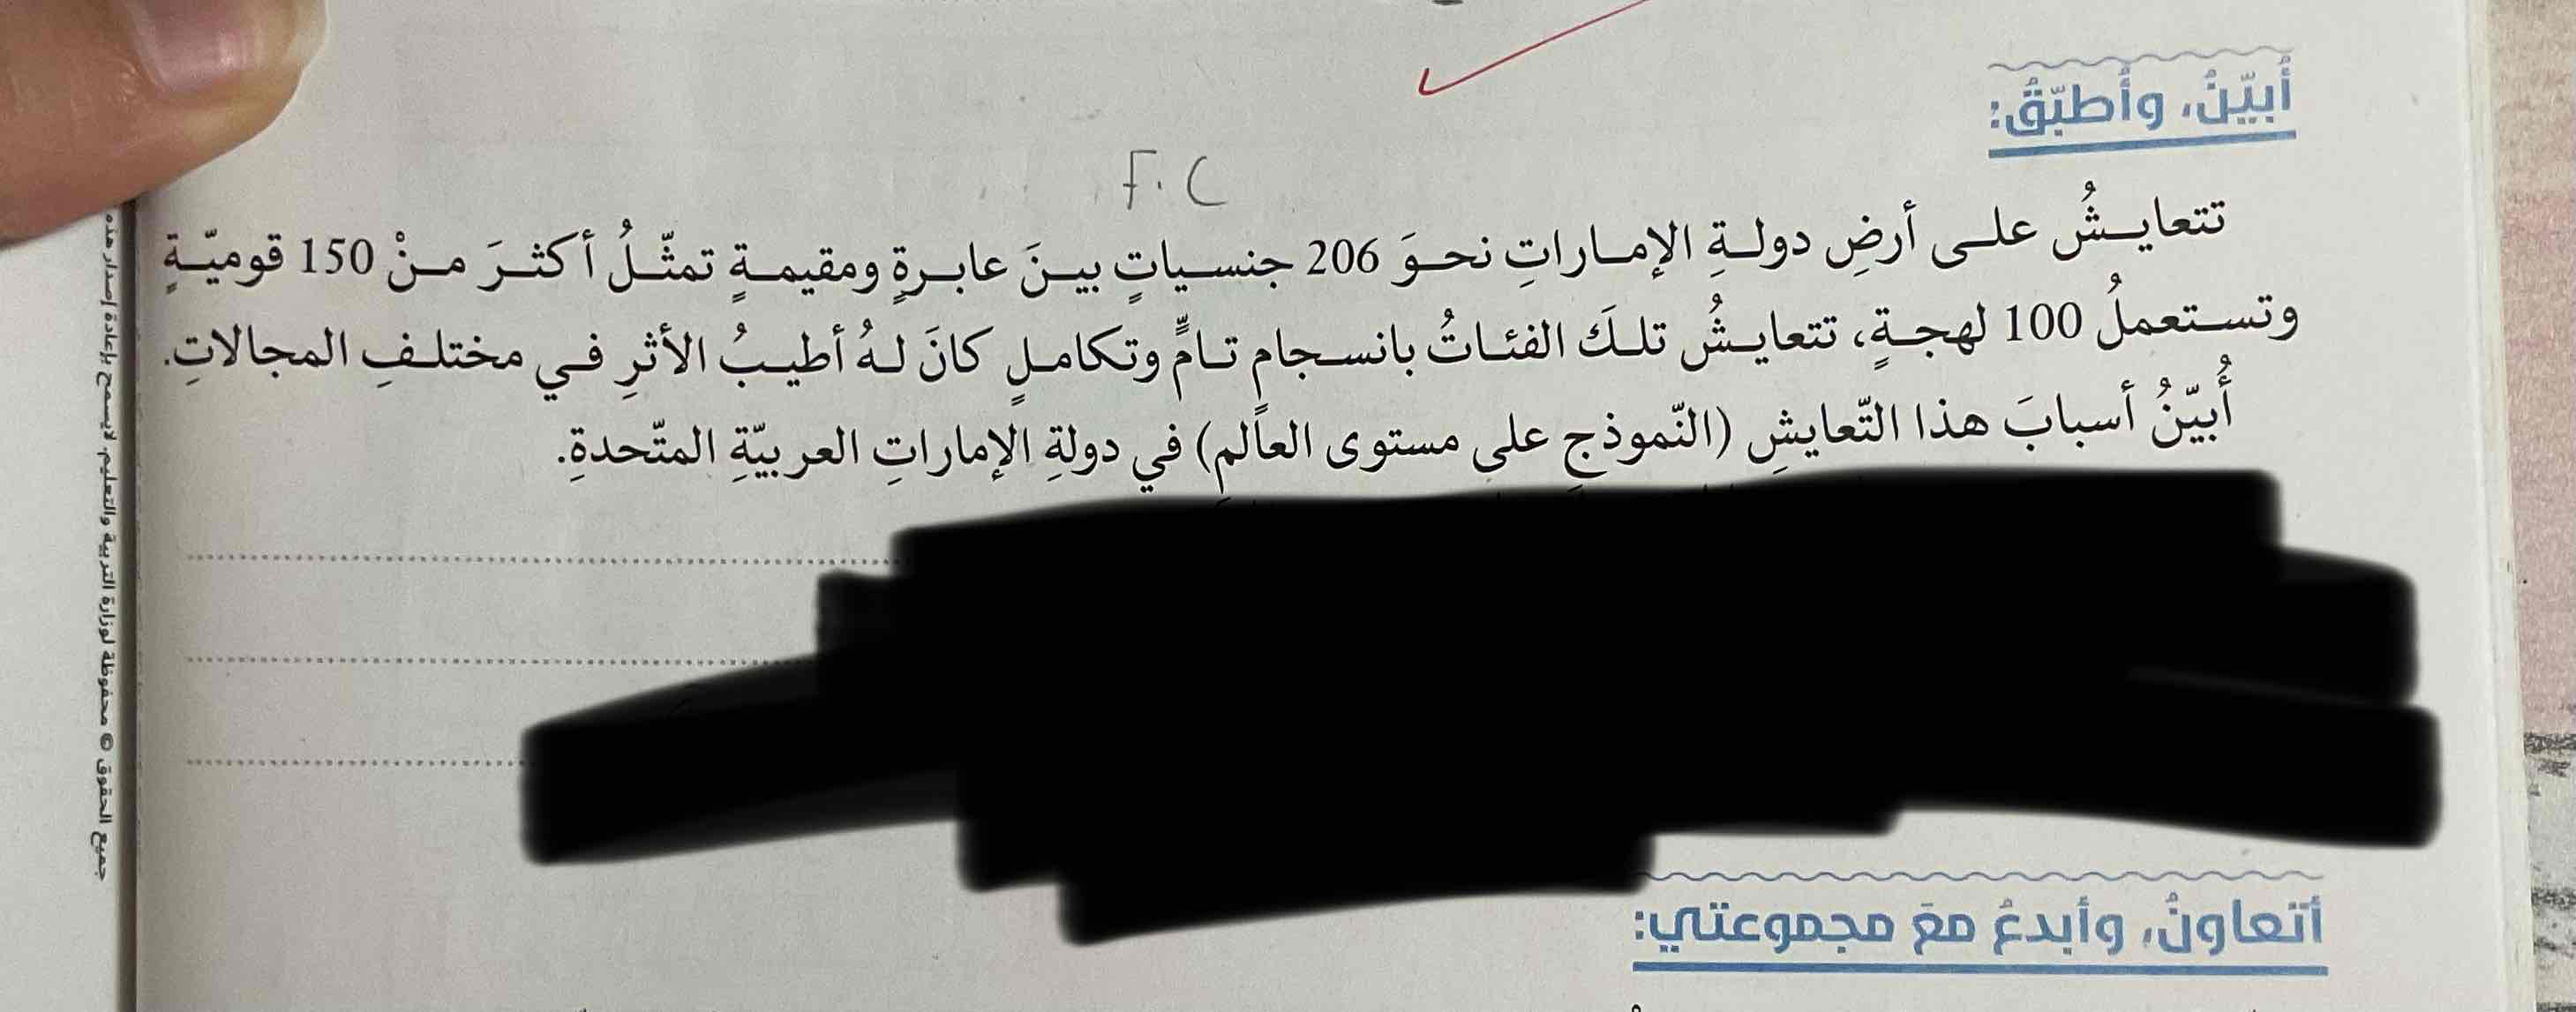 أُبيّنُ، وأُطبّقُ:
F.C
تتعايشُ على أرضِ دولةِ الإماراتِ نحوَ 206 جنسياتٍ بينَ عابرةٍ ومقيمةٍ تمثّلُ أكثرَ منْ 150 قوميّةٍ
وتستعملُ 100 لهجةٍ، تتعايشُ تلكَ الفئاتُ بانسجامٍ تامٍّ وتكاملٍ كانَ لهُ أطيبُ الأثرِ في مختلفِ المجالاتِ.
أُبيّنُ أسبابَ هذا التّعايشِ (النّموذجِ على مستوى العالمِ) في دولةِ الإماراتِ العربيّةِ المتّحدةِ.
أتعاونُ، وأبدعُ معَ مجموعتي:
جميع الحقوق © محفوظة لوزارة التربية والتعليم، لايسمح بإعادة إصدار هذه